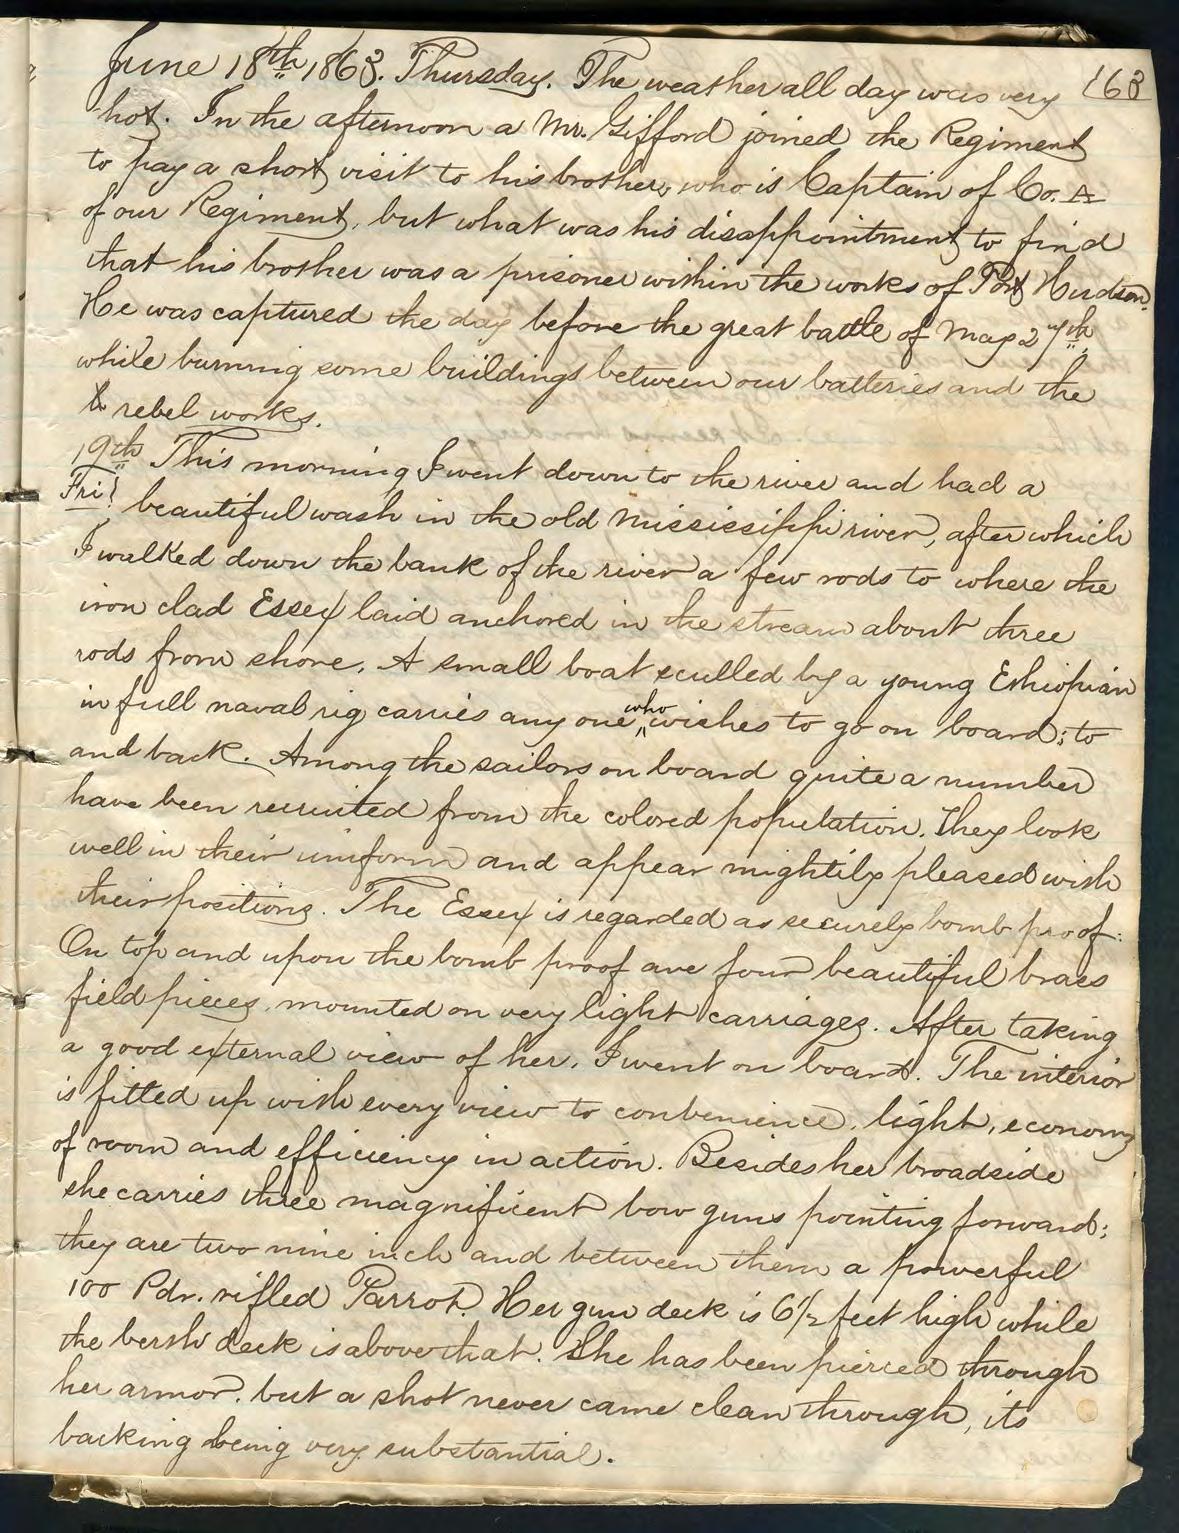 June 18th 1863. Thursday. The weather all day was very 163
hot. In the afternoon a Mr. Gifford joined the Regiment
to pay a short visit to his brother, who is Captain of Co. A
of our Regiment, but what was his disappointment to find
that his brother was a prisoner within the works of Port Hudson.
He was captured the day before the great battle of May 27th,
while burning some buildings between our batteries and the
& rebel works.
19th This morning I went down to the river and had a
Fri! beautiful wash in the old Mississippi river, after which
I walked down the bank of the river a few rods to where the
iron clad Essex laid anchored in the stream about three
rods from shore. A small boat sculled by a young Ethiopian
in full naval rig carries any one who wishes to go on board; to
and back. Among the sailors on board quite a number
have been recruited from the colored population. They look
well in their uniform and appear mightily pleased with
their positions. The Essex is regarded as securely bomb proof:
On top and upon the bomb proof are four beautiful brass
field pieces, mounted on very light carriages. After taking
a good external view of her, I went on board. The interior
is fitted up with every view to convenience, light, economy
of room and efficiency in action. Besides her broadside
she carries three magnificent bow guns pointing forward;
they are two nine inch and between them a powerful
100 Pdr. rifled Parrot. Her gun deck is 6½ feet high while
the berth deck is above that. She has been pierced through
her armor, but a shot never came clean through, its
backing being very substantial.